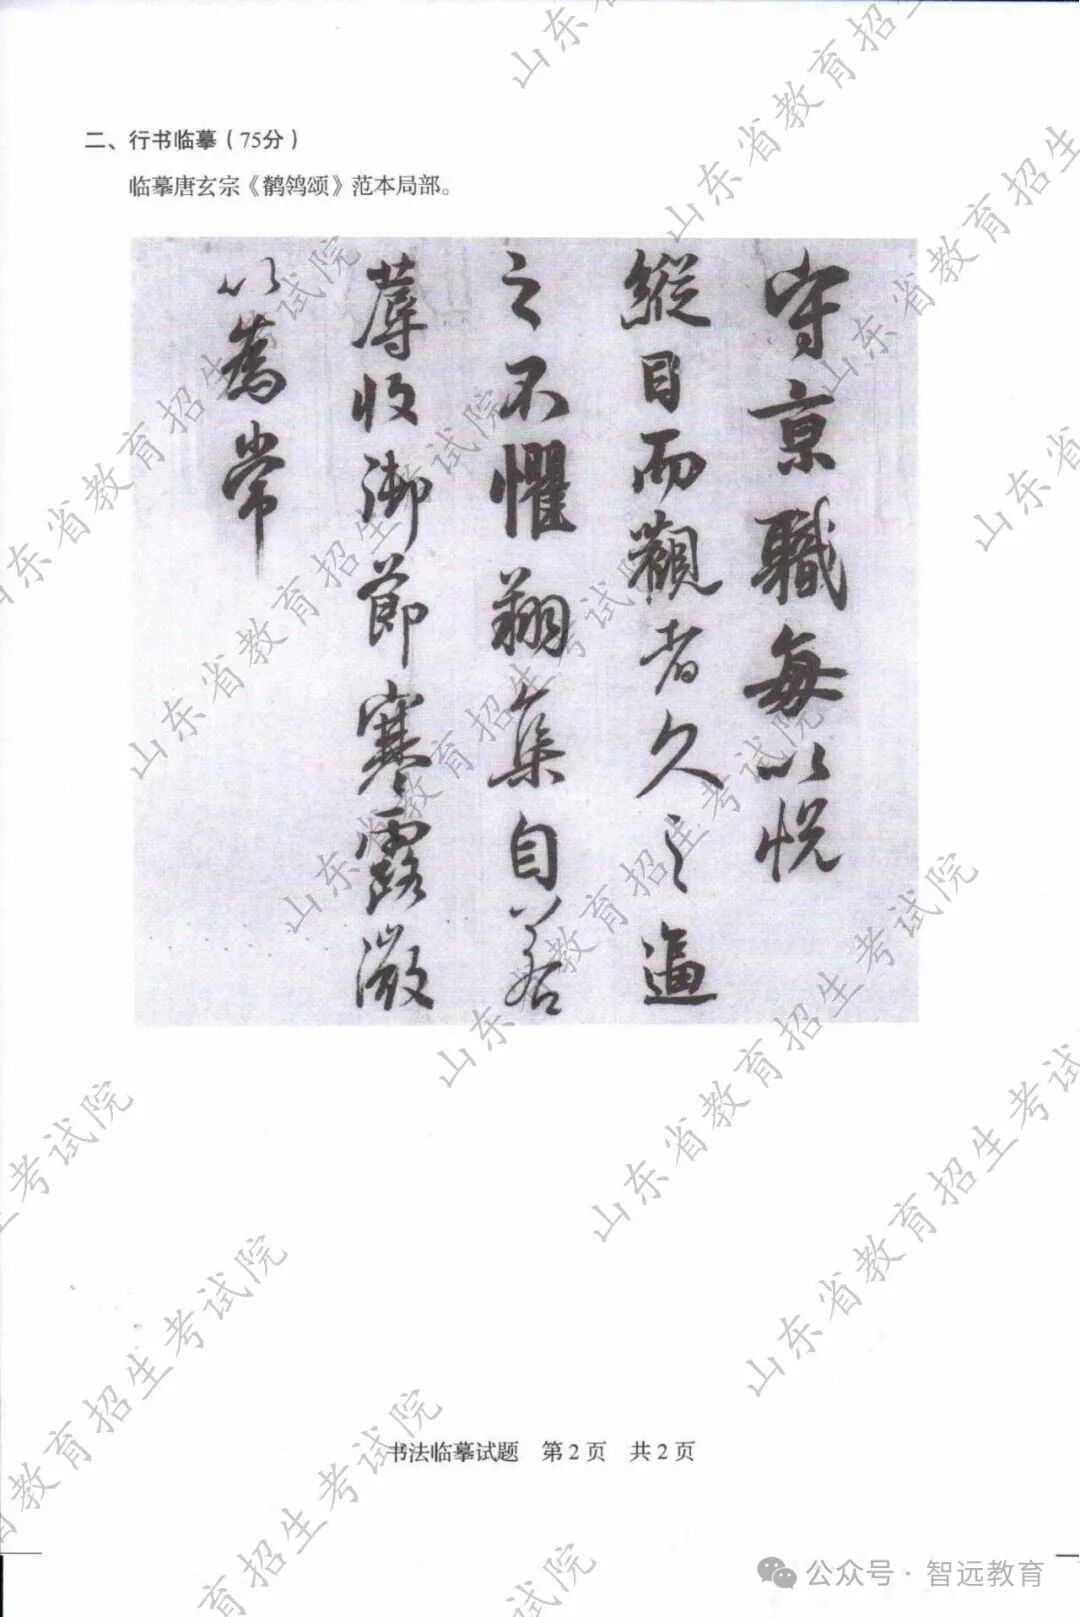 二、行书临摹（75分）
临摹唐玄宗《鹡鸰颂》范本局部。
守京職每以悦
縱目而觀者久之逼
之不懼翔集自若
蓐收御節寒露微
以為常
书法临摹试题 第2页 共2页
公众号·智远教育
山东省教育招生考试院